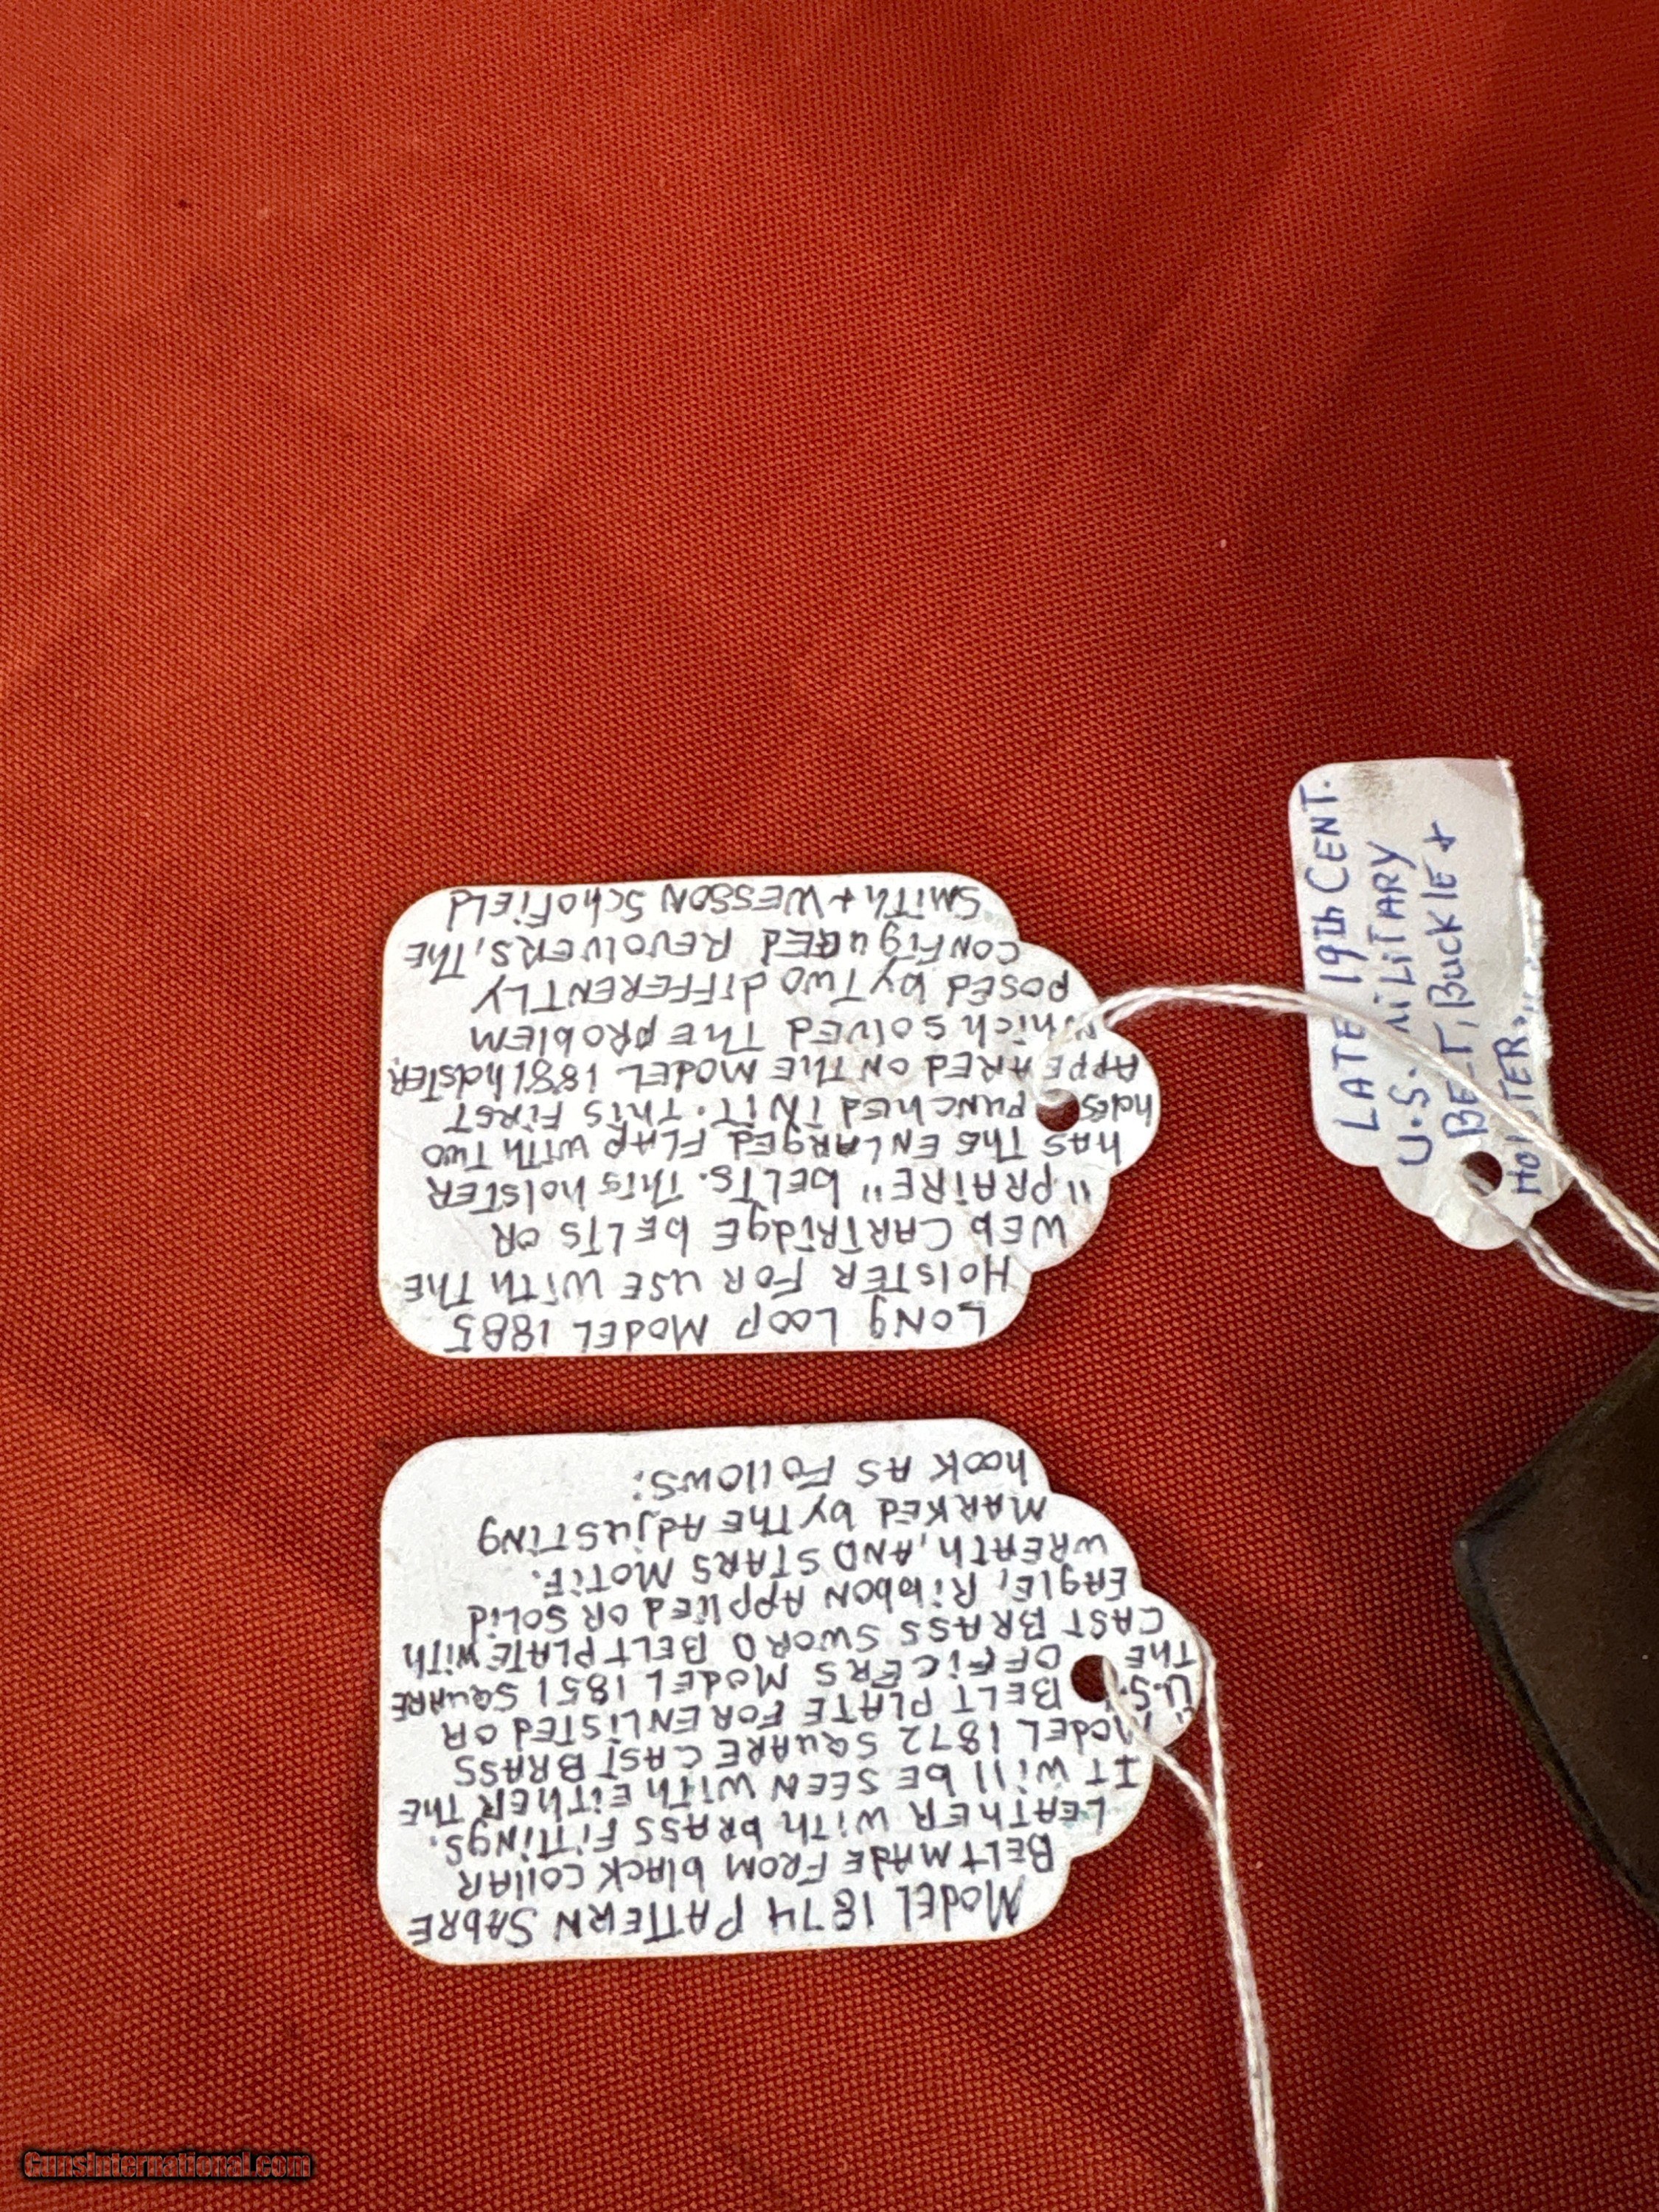 MODEL 1874 PATTERN SABRE
BELT MADE FROM black COllAR
LEATHER WITH bRASS FITTINgS.
IT Will bE SEEN WITH EITHER THE
MODEL 1872 SQUARE CAST BRASS
"U.S." BELT PLATE FOR ENLISTED OR
THE OFFICERS MODEL 1851 SQUARE
CAST BRASS SWORD BELT PLATE WITH
EAglE, RibbON APPlIED OR SOLID
WREATH, AND STARS MOTIF.
MARKED by THE AdjUSTINg
hOOK AS FOllOWS:
LONg LOOP MODEL 1885
HOlSTER FOR USE WITH THE
WEb CARTRIdgE bElTS OR
"PRAIRE" bELTS. THIS holSTER
hAS THE ENLARgED FLAP WITH TWO
holES PUNCHED IN IT. THIS FIRST
APPEARED ON THE MODEL 1881 holSTER,
Which SOLVED THE PRObLEM
POSED by TWO dIFFERENTLY
CONFIgURED REVOLVERS, THE
SMITH + WESSON SCHOFIELD
LATE 19th CENT.
U.S. MILITARY
BELT, BUCKLE +
HOLSTER
GunsInternational.com